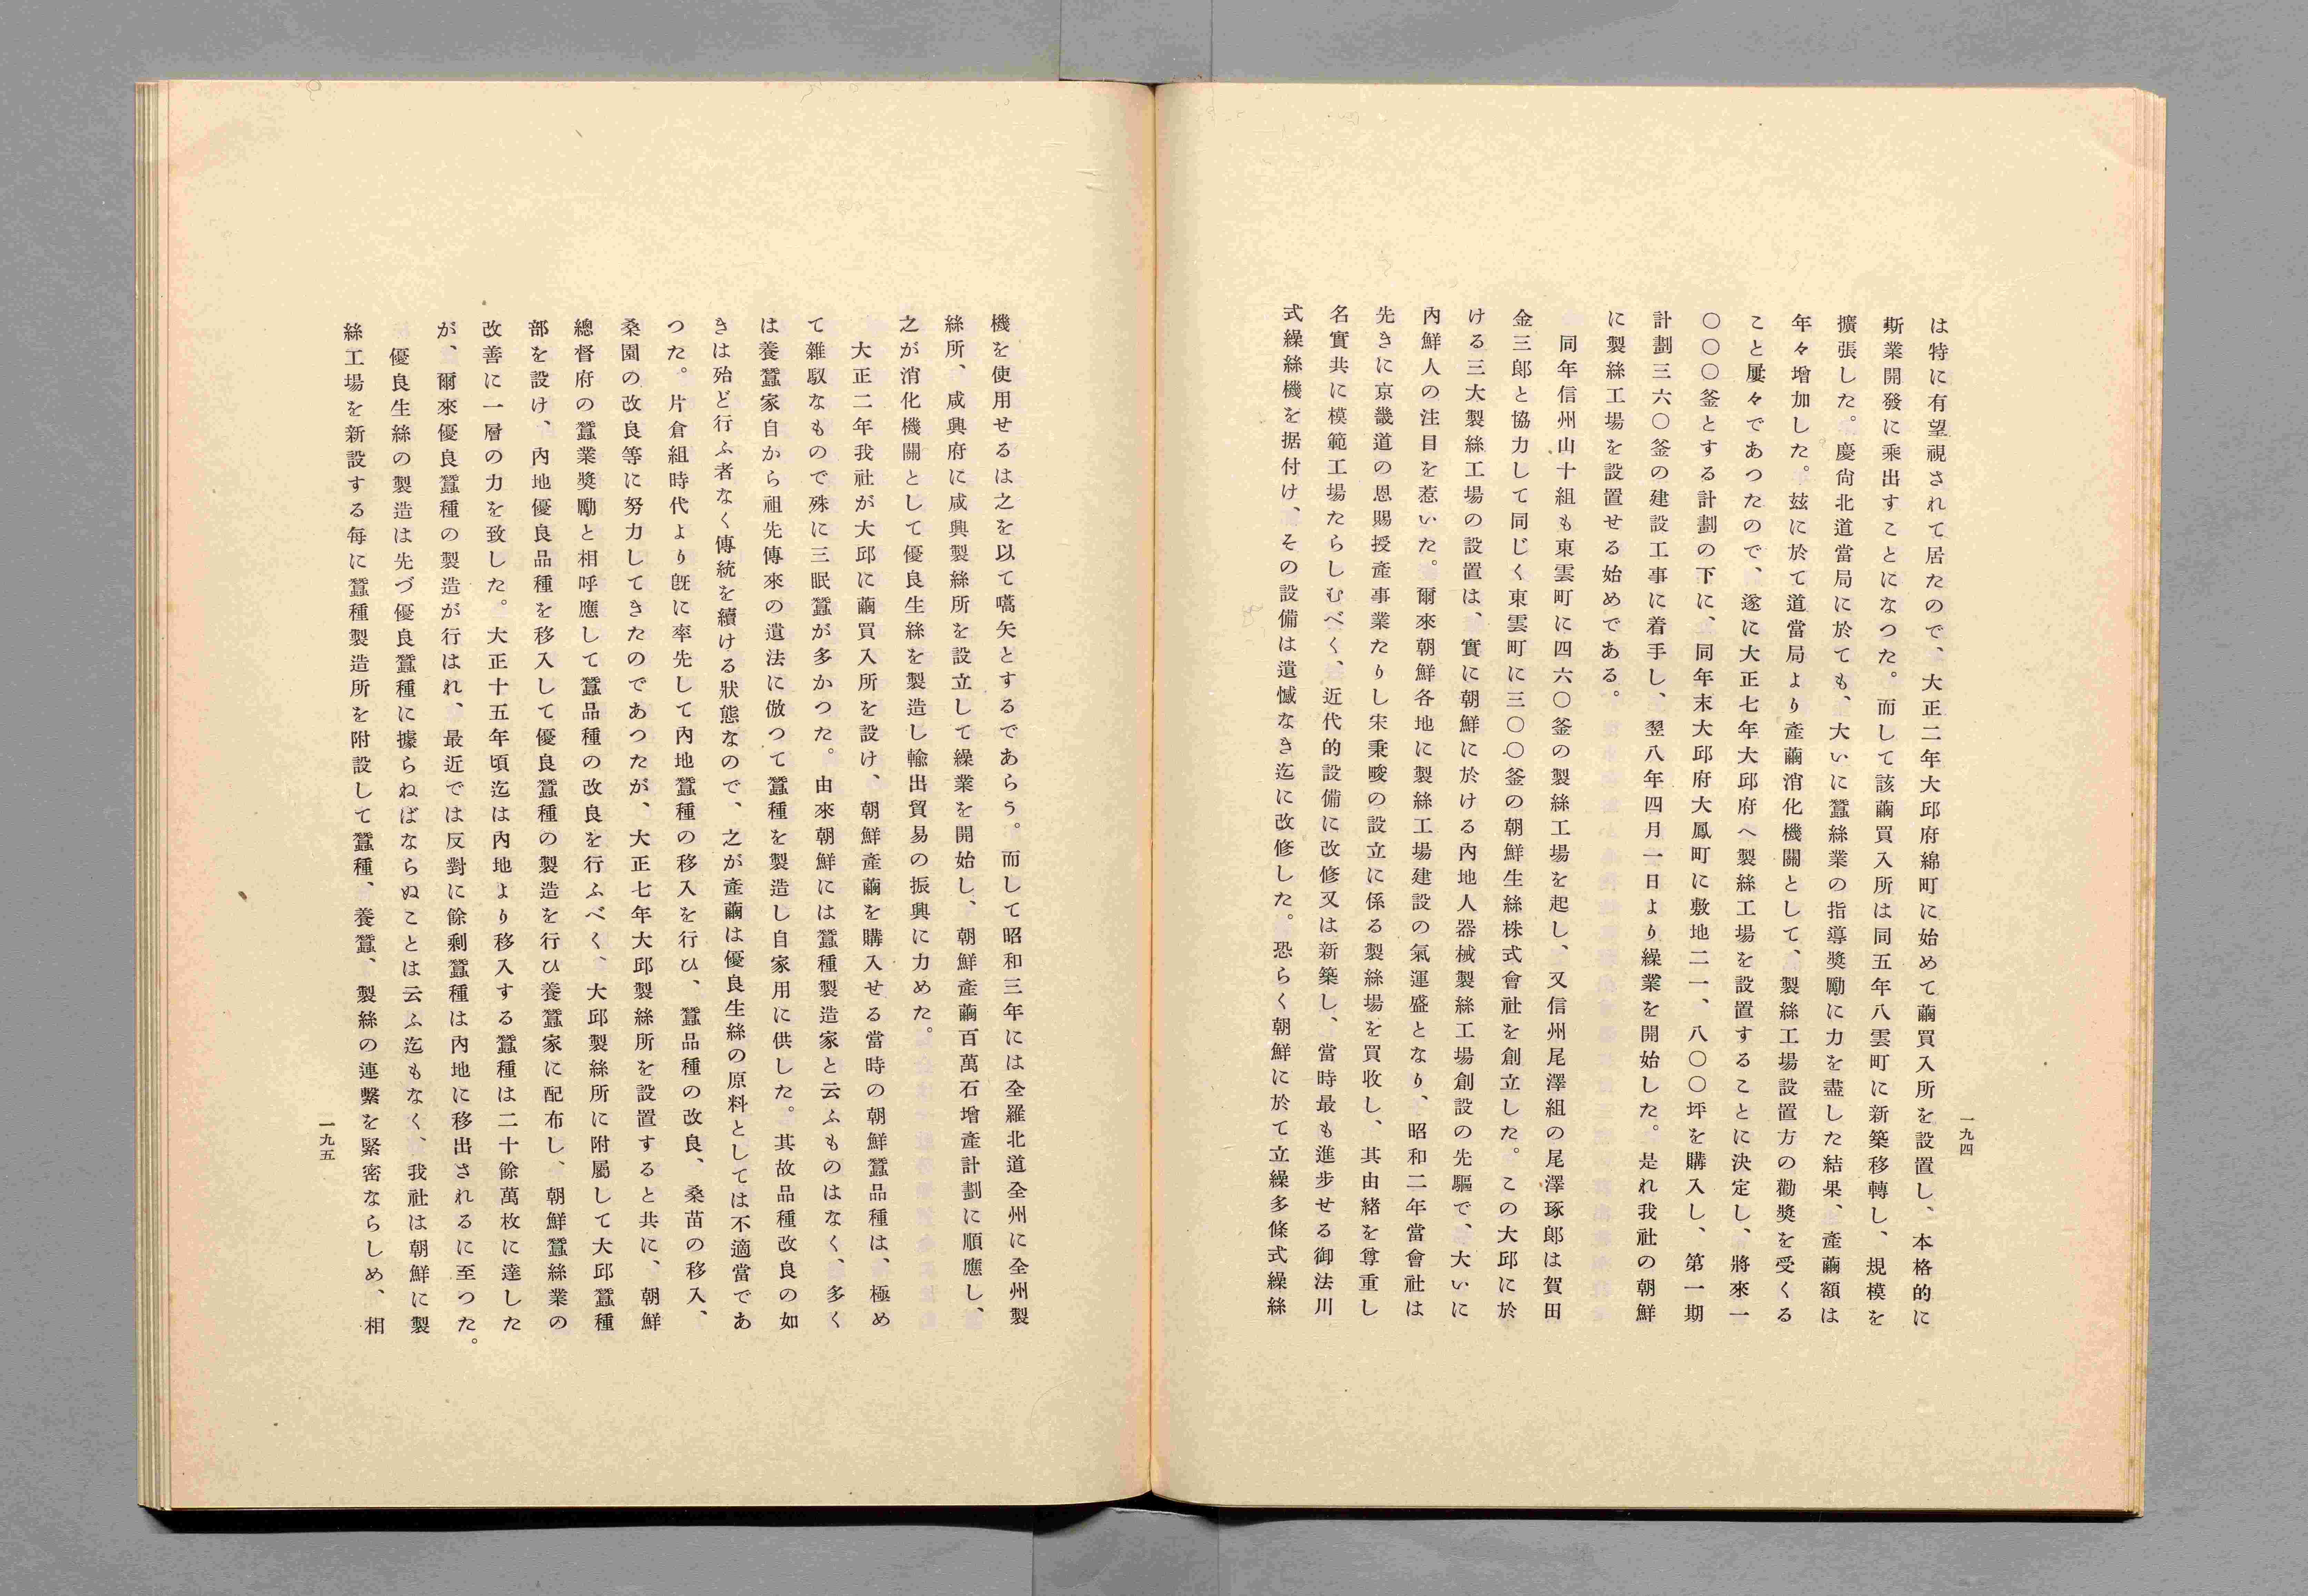 は特に有望視されて居たので、大正二年大邱府綿町に始めて繭買入所を設置し、本格的に
斯業開發に乘出すことになつた。而して該繭買入所は同五年八雲町に新築移轉し、規模を
擴張した。慶尙北道當局に於ても、大いに蠶絲業の指導奬勵に力を盡した結果、產繭額は
年々增加した。玆に於て道當局より產繭消化機關として、製絲工場設置方の勸奬を受くる
こと屢々であつたので、遂に大正七年大邱府へ製絲工場を設置することに決定し、將來一
〇〇〇釜とする計劃の下に、同年末大邱府大鳳町に敷地二一、八〇〇坪を購入し、第一期
計劃三六〇釜の建設工事に着手し、翌八年四月一日より繰業を開始した。是れ我社の朝鮮
に製絲工場を設置せる始めである。
同年信州山十組も東雲町に四六〇釜の製絲工場を起し、又信州尾澤組の尾澤琢郞は賀田
金三郞と協力して同じく東雲町に三〇〇釜の朝鮮生絲株式會社を創立した。この大邱に於
ける三大製絲工場の設置は、實に朝鮮に於ける內地人器械製絲工場創設の先驅で、大いに
內鮮人の注目を惹いた。爾來朝鮮各地に製絲工場建設の氣運盛となり、昭和二年當會社は
先きに京畿道の恩賜授產事業たりし宋秉畯の設立に係る製絲場を買收し、其由緒を尊重し
名實共に模範工場たらしむべく、近代的設備に改修又は新築し、當時最も進步せる御法川
式繰絲機を据付け、その設備は遺憾なき迄に改修した。恐らく朝鮮に於て立繰多條式繰絲
一九四
機を使用せるは之を以て嚆矢とするであらう。而して昭和三年には全羅北道全州に全州製
絲所、咸興府に咸興製絲所を設立して繰業を開始し、朝鮮產繭百萬石增產計劃に順應し、
之が消化機關として優良生絲を製造し輸出貿易の振興に力めた。
大正二年我社が大邱に繭買入所を設け、朝鮮產繭を購入せる當時の朝鮮蠶品種は、極め
て雜馭なもので殊に三眠蠶が多かつた。由來朝鮮には蠶種製造家と云ふものはなく、多く
は養蠶家自から祖先傳來の遺法に倣つて蠶種を製造し自家用に供した。其故品種改良の如
きは殆ど行ふ者なく傳統を續ける狀態なので、之が產繭は優良生絲の原料としては不適當であ
つた。片倉組時代より旣に率先して內地蠶種の移入を行ひ、蠶品種の改良、桑苗の移入、
桑園の改良等に努力してきたのであつたが、大正七年大邱製絲所を設置すると共に、朝鮮
總督府の蠶業奬勵と相呼應して蠶品種の改良を行ふべく、大邱製絲所に附屬して大邱蠶種
部を設け、內地優良品種を移入して優良蠶種の製造を行ひ養蠶家に配布し、朝鮮蠶絲業の
改善に一層の力を致した。大正十五年頃迄は內地より移入する蠶種は二十餘萬枚に達した
が、爾來優良蠶種の製造が行はれ、最近では反對に餘剩蠶種は內地に移出されるに至つた。
優良生絲の製造は先づ優良蠶種に據らねばならぬことは云ふ迄もなく、我社は朝鮮に製
絲工場を新設する每に蠶種製造所を附設して蠶種、養蠶、製絲の連繫を緊密ならしめ、相
一九五